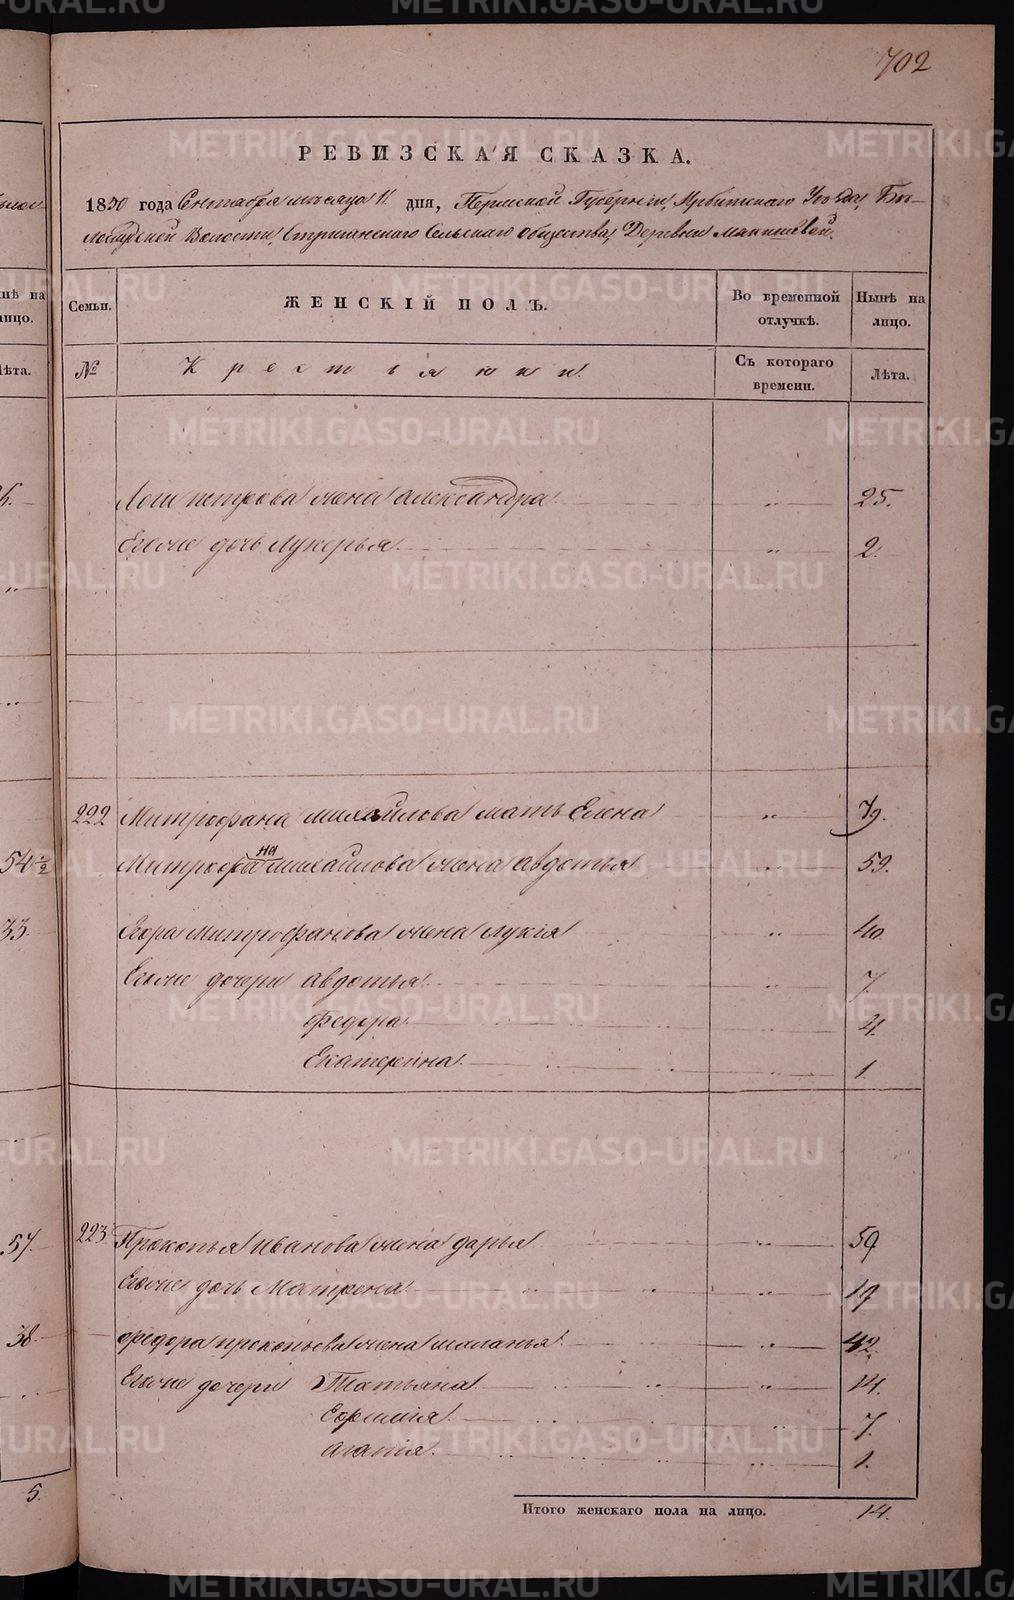 702
РЕВИЗСКАЯ СКАЗКА.
1850 года Сентября месяца 11 дня, Пермской Губернiи, Ирбитского Уезда, Бѣ-
лослудской Волости, Стриганского Сельского общества, Деревни
Семьи. ЖЕНСКIЙ ПОЛЪ. Во временной отлучкѣ. Нынѣ на лицо.
№ Крестьянки. Съ котораго времени. Лѣта.
петрова жена александра 25.
Егоже дочь Лукерья 2.
222 Митрофана михайлова мать Елена 79.
54½ Митрофана михайлова жена авдотья 59.
33. Егора Митрофанова жена лукiя 40
Егоже дочери авдотья 7
федора 4.
Екатерина 1.
57. 223 Прокопья иванова жена дарья 59
Егоже дочь Матрена 19
38 федора прокопьева жена маланья 42.
Егоже дочери Татьяна 14.
Ефимия 7.
агапiя 1.
5. Итого женскаго пола на лицо. 14.
METRIKI.GASO-URAL.RU